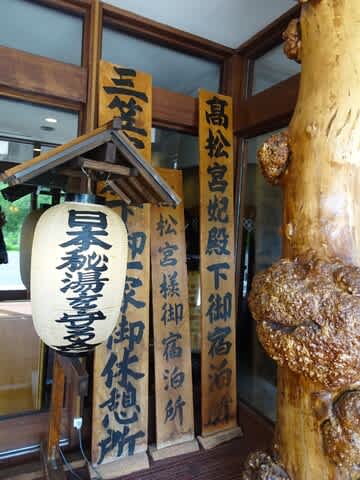 高松宮妃殿下御宿泊所
松宮様御宿泊所
三笠 下御一家御休憩所
日本秘湯を守る